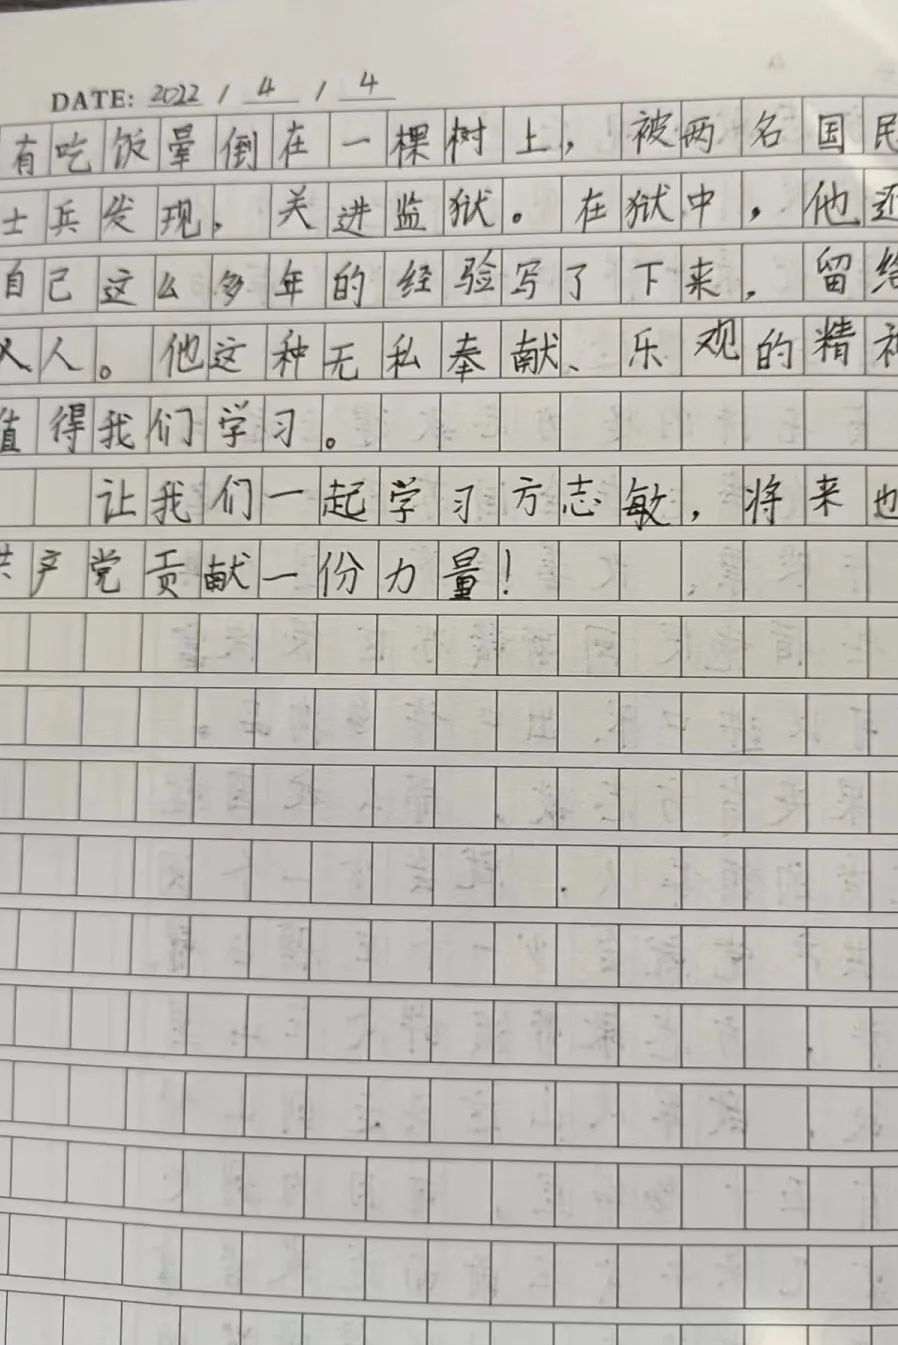 DATE: 2022 / 4 / 4
有吃饭晕倒在一棵树上，被两名国民
士兵发现，关进监狱。在狱中，他还
自己这么多年的经验写了下来，留给
人。他这种无私奉献、乐观的精神
值得我们学习。
让我们一起学习方志敏，将来也
共产党贡献一份力量！